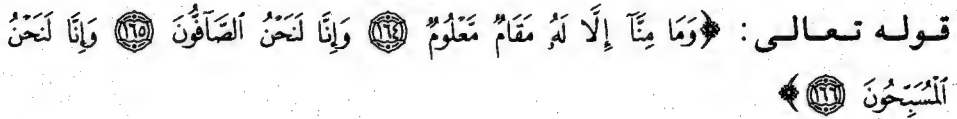 قوله تعالى: ﴿وَمَا مِنَّآ إِلَّا لَهُۥ مَقَامٌ مَّعْلُومٌ ۝١٦٤ وَإِنَّا لَنَحْنُ ٱلصَّآفُّونَ ۝١٦٥ وَإِنَّا لَنَحْنُ
ٱلْمُسَبِّحُونَ ۝١٦٦﴾